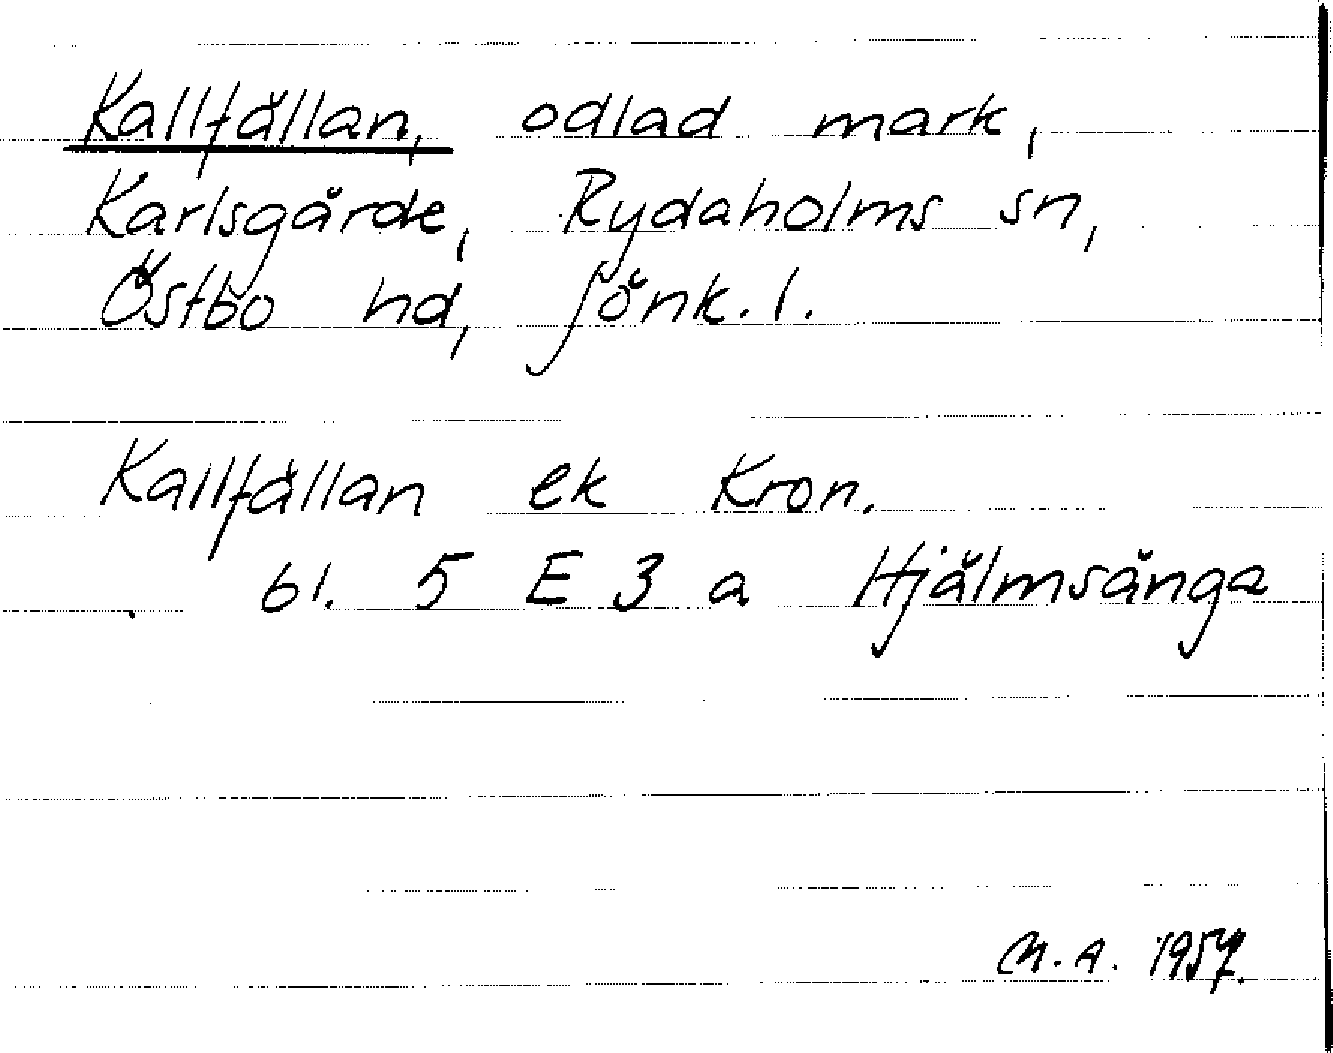 Kallfällan, odlad mark,
Karlsgärde, Rydaholms sn,
Östbo hd, Jönk. l.
Kallfällan ek Kron.
bl. 5 E 3 a Hjälmsänga
M.A. 1957.